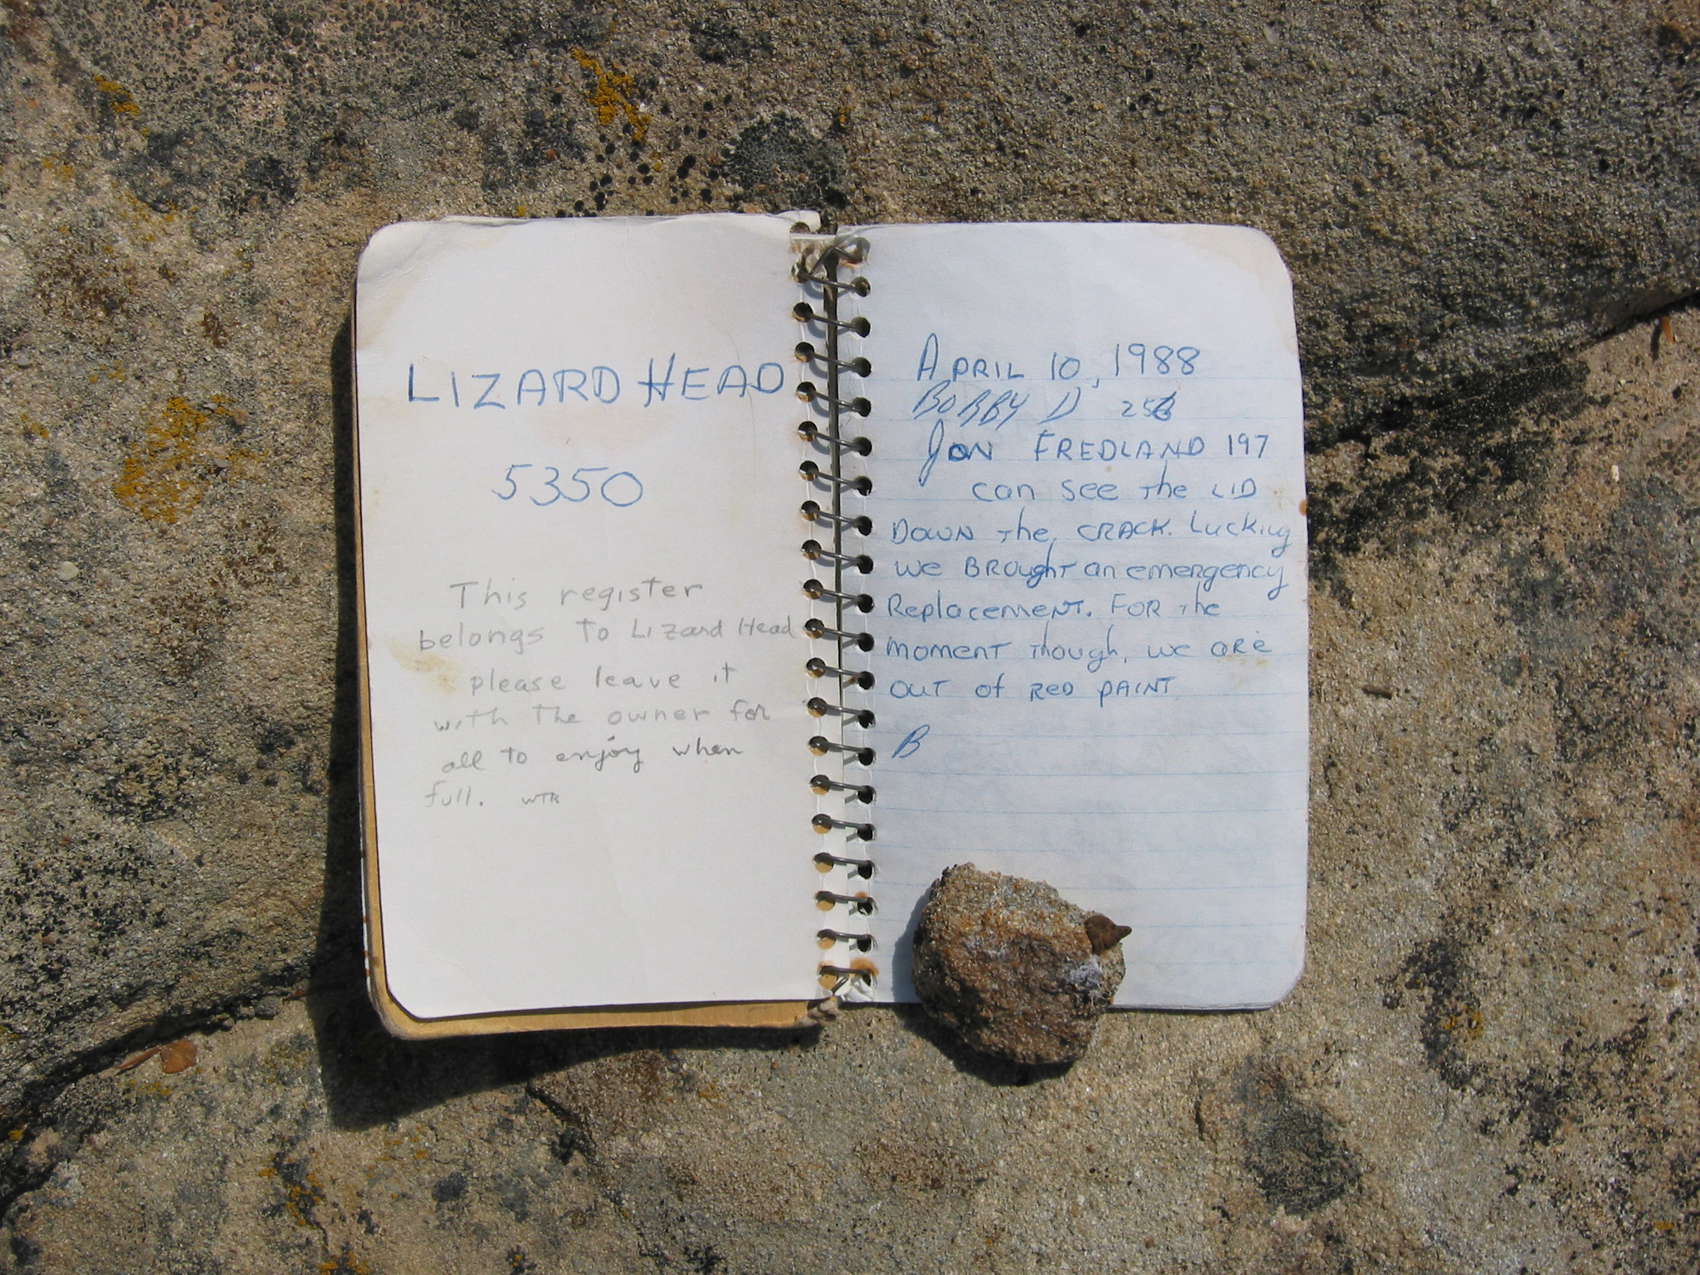 LIZARD HEAD
5350
This register
belongs to Lizard Head
please leave it
with the owner for
all to enjoy when
full. WTR
APRIL 10, 1988
BOBBY D
JON FREDLAND 197
can see the LID
DOWN the CRACK. Lucking
we BROught an emergency
Replacement. FOR the
moment though, we are
out of RED PAINT
B